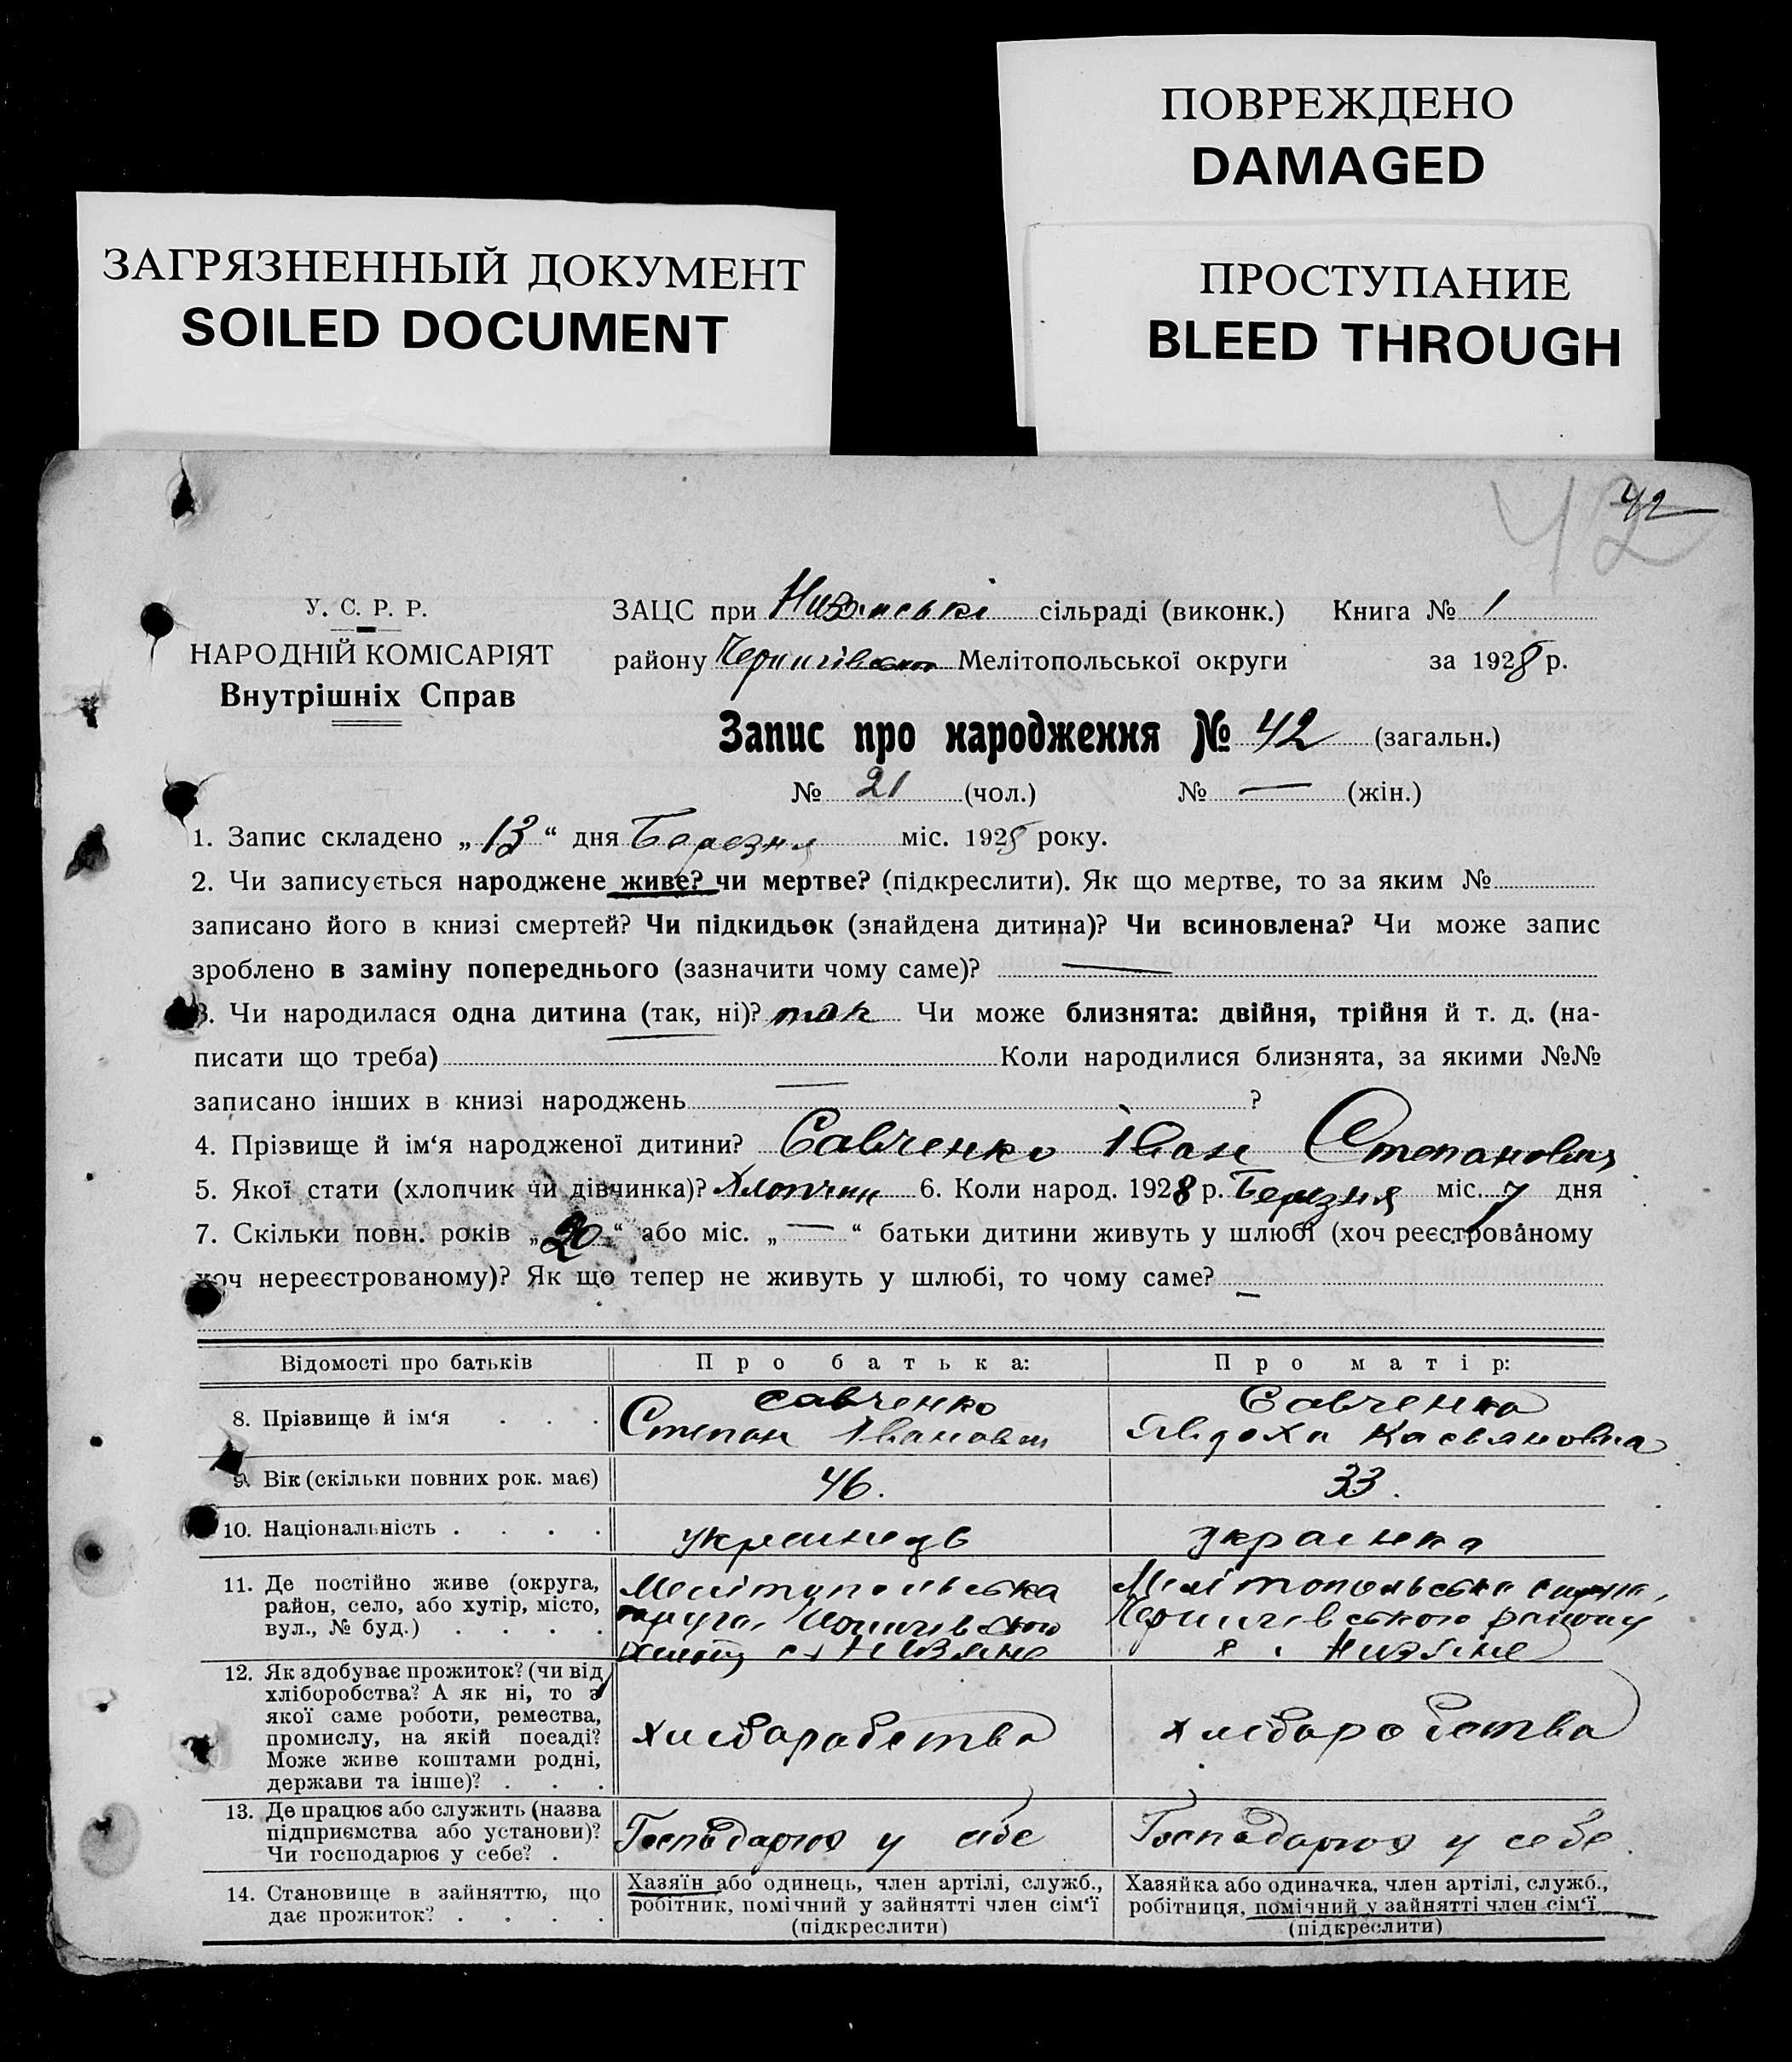 ПОВРЕЖДЕНО
DAMAGED
ЗАГРЯЗНЕННЫЙ ДОКУМЕНТ
SOILED DOCUMENT
ПРОСТУПАНИЕ
BLEED THROUGH
42
42
У. С. Р. Р.
НАРОДНІЙ КОМІСАРІЯТ
Внутрішніх Справ
ЗАЦС при сільраді (виконк.) Книга № 1
району Мелітопольської округи за 1928 р.
Запис про народження № 42 (загальн.)
№ 21 (чол.) № — (жін.)
1. Запис складено „13“ дня Березня міс. 1928 року.
2. Чи записується народжене живе? чи мертве? (підкреслити). Як що мертве, то за яким №
записано його в книзі смертей? Чи підкидьок (знайдена дитина)? Чи всиновлена? Чи може запис
зроблено в заміну попереднього (зазначити чому саме)? —
3. Чи народилася одна дитина (так, ні)? так Чи може близнята: двійня, трійня й т. д. (на-
писати що треба) Коли народилися близнята, за якими №№
записано інших в книзі народжень — ?
4. Прізвище й ім‘я народженої дитини? Савченко Іван Степанович
5. Якої стати (хлопчик чи дівчинка)? Хлопчик 6. Коли народ. 1928 р. Березня міс. 7 дня
7. Скільки повн. років „20“ або міс. „—“ батьки дитини живуть у шлюбі (хоч реєстрованому
хоч нереєстрованому)? Як що тепер не живуть у шлюбі, то чому саме? —
Відомості про батьків Про батька: Про матір:
8. Прізвище й ім‘я . . . Савченко Степан Іванович Савченко Явдоха Касьяновна
9. Вік (скільки повних рок. має) 46. 33.
10. Національність . . . . украинець украінка
11. Де постійно живе (округа,
район, село, або хутір, місто,
вул., № буд.) . . . .
Мелітопольська
округа,
с.
Мелітопольська округа,
району
с.
12. Як здобуває прожиток? (чи від
хліборобства? А як ні, то з
якої саме роботи, ремества,
промислу, на якій посаді?
Може живе коштами родні,
держави та інше)? . . .
хліборобства
хліборобства
13. Де працює або служить (назва
підприємства або установи)?
Чи господарює у себе? .
Господарює у себе
Господарює у себе
14. Становище в зайняттю, що
дає прожиток? . . . .
Хазяїн або одинець, член артілі, служб.,
робітник, помічний у зайнятті член сім‘ї
(підкреслити)
Хазяйка або одиначка, член артілі, служб.,
робітниця, помічний у зайнятті член сім‘ї
(підкреслити)